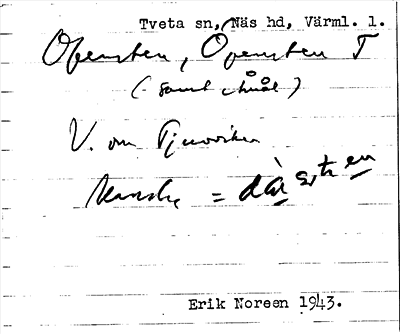 Tveta sn, Näs hd, Värml. l.
Ofensten, Opensten T
(- samt
V. om Tjuvviken
kanske =
Erik Noreen 1943.